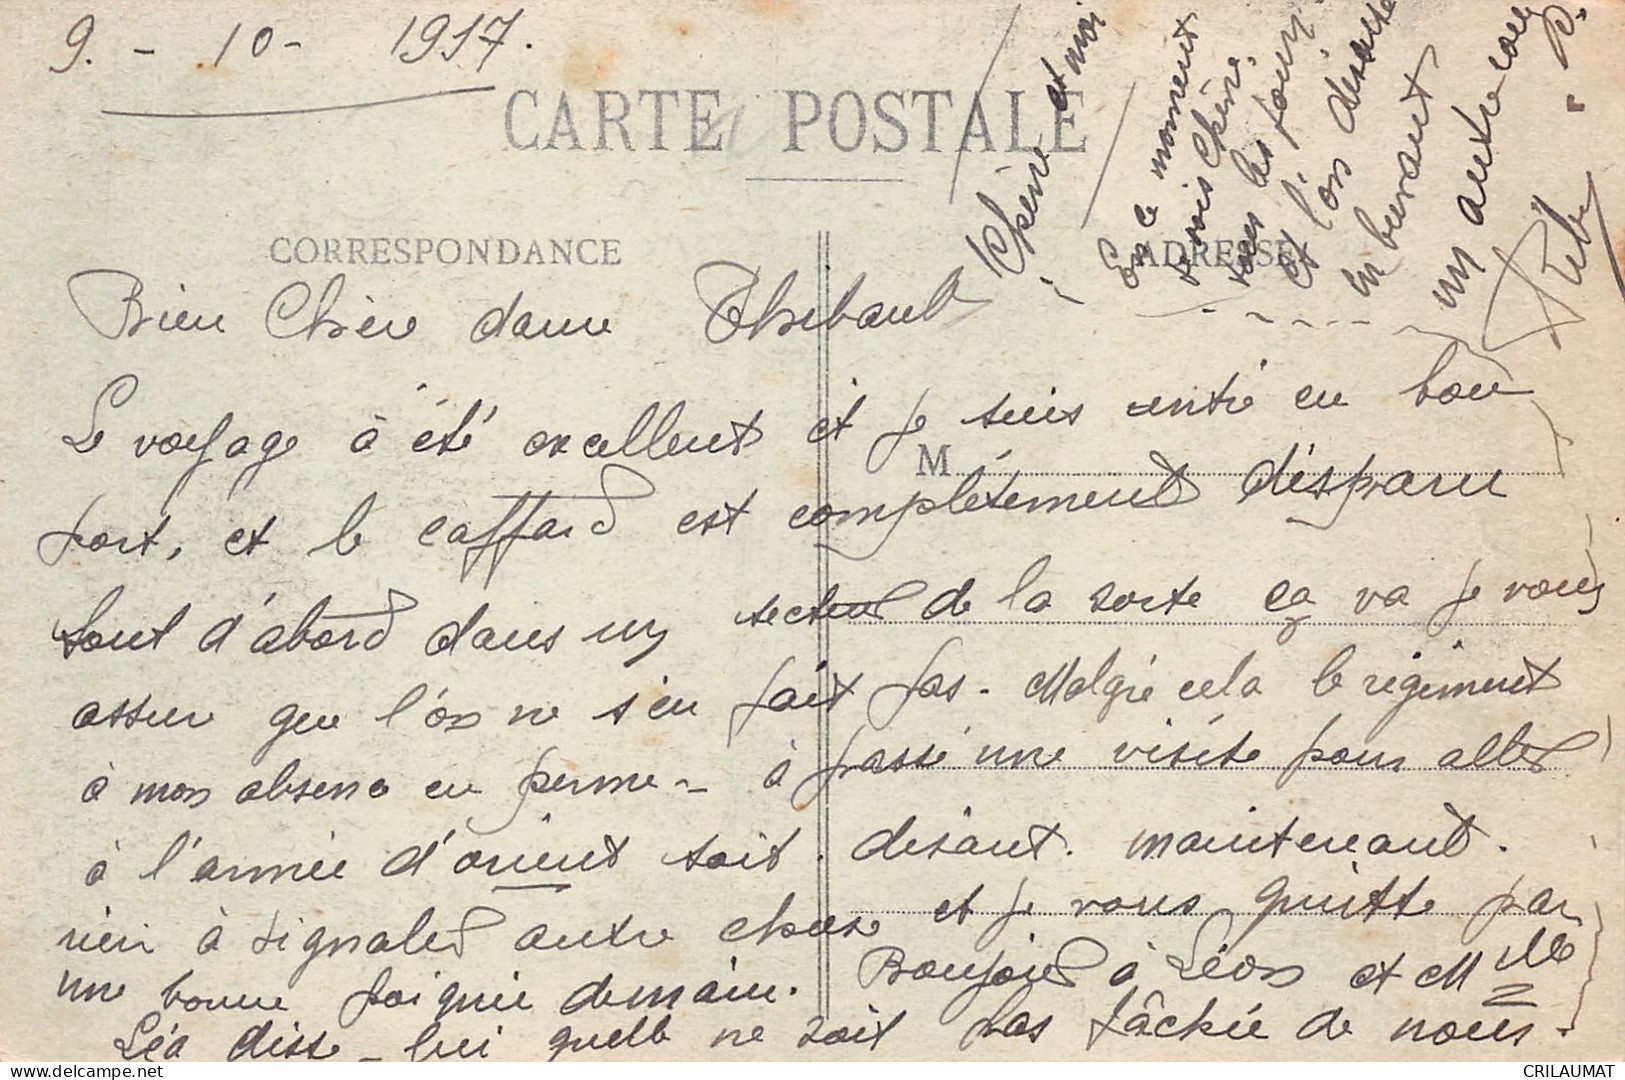 9. - 10 - 1917.
CARTE POSTALE
CORRESPONDANCE
ADRESSE
Bien Chère dame Thibault
Le voyage à été excellent et je suis rentré en bon
M
port, et le caffard est complétement disparu
tout d'abord dans un secteur de la sorte ça va je vous
assure que l'on ne s'en fait pas. Malgré cela le régiment
à mon absence en perme - à passé une visite pour aller
à l'armée d'orient soit. disant. maintenant.
rien à signaler autre chose et je vous quitte par
une bonne poignée demain. Bonjour à Léon et Mlle
Léa disse-lui quelle ne soit pas fâchée de nous.
Chère et moi
en ce moment
Chère
tous les jours
et l'on
en buvant
un autre
P.P.
netteamtmdb.be
CRILAUMAT